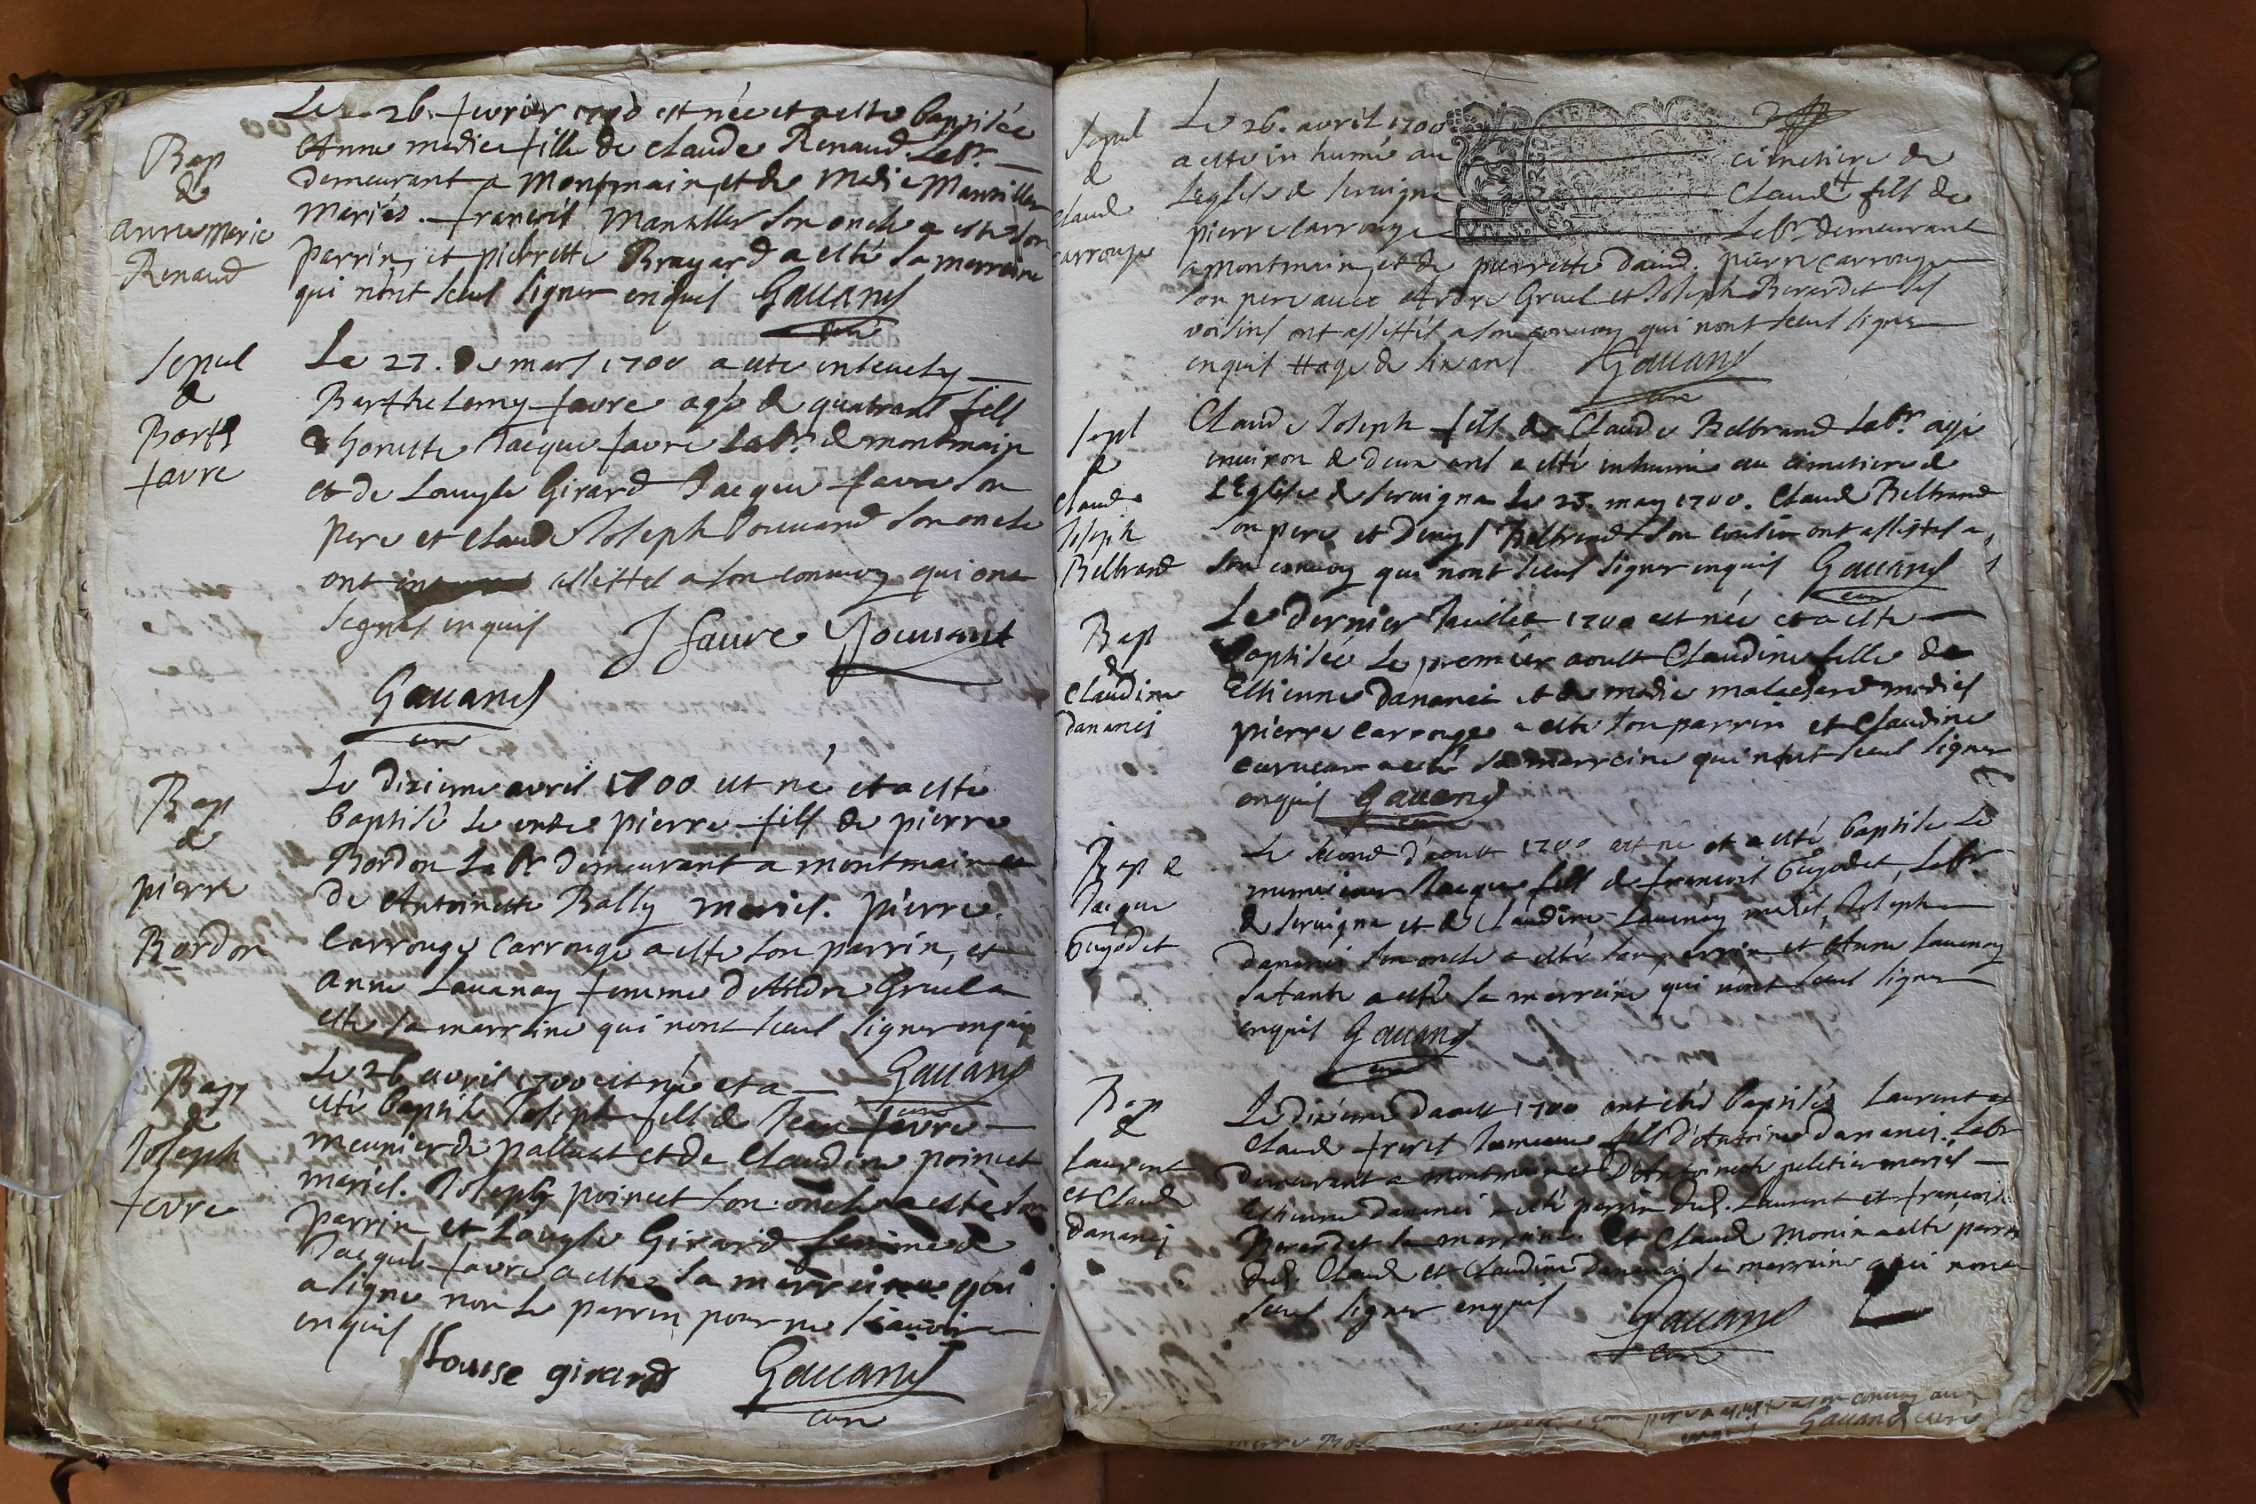 Le 26. fevrier 1700 est née et a esté baptisée
Bap
de
anne marie
Renaud
Anne marie fille de claude Renaud Labr.
demeurant a Montmain, et de marie Manviller
mariés. francois Manviller son oncle a esté son
parrin, et pierrette Brayard a esté sa marraine
qui n'ont sceus signer enquis Gauand
cure
Sepul
de
Barth
favre
Le 27. de mars 1700 a esté ensevely
Barthelemy favre agé de quatre ans fils
d'honneste Jacque favre Labr. de montmain
et de Louyse Girard Jacque favre son
pere et claude Joseph Jouvand son oncle
ont assistés a son convoy qui ont
signés enquis
J favre Jouvant
Gauand
cure
Bap
de
pierre
Bordon
Le dixieme avril 1700 est né et a esté
baptisé le onze pierre fils de pierre
Bordon Labr demeurant a montmain et
de Antoinette Bally mariés. pierre
Carrouge carrouge a esté son parrin, et
anne Lavanay femme d'André Gruel a
esté sa marraine qui n'ont sceus signer enquis
Gauand
cure
Bap
de
Joseph
favre
Le 26 avril 1700 est né et a
esté baptisé Joseph fils de Jean favre
meunier de palluat et de Claudine poincet
mariés. Joseph poincet son oncle a esté son
parrin et Louyse Girard femme de
Jacques favre a esté sa marraine qui
a signé non le parrin pour ne sçavoir
enquis
Louise girard Gauand
cure
Sepul
de
claud
carrouge
Le 26. avril 1700
a esté inhumé au cimetiere de
l'eglise de servigna Claud # fils de
pierre carrouge Labr. demeurant
a montmain, et de pierrette pierre carrouge
son pere avec André Gruel et Joseph Berardet ses
voisins ont assistés a son convoy qui n'ont sceus signer
enquis # agé de six ans Gauand
cure
Sepl
de
claude
Joseph
Beltrand
Claude Joseph fils de Claude Beltrand Labr. agé
environ de deux ans a esté inhumé au cimetiere de
l'Eglise de servigna Le 23. may 1700. Claude Beltrand
son pere et Denys Beltrand son cousin ont assistés a
son convoy qui n'ont sceus signer enquis Gauand
cure
Bap
de
claudine
dananci
Le dernier Juillet 1700 est née et a esté
baptisée le premier aoust Claudine fille de
Estienne dananci et de marie mariés
pierre carrouge a esté son parrin et claudine
a esté sa marraine qui n'ont sceus signer
enquis Gauand
cure
Bap de
Jacque
Guyodet
Le second d'aoust 1700 est né et a esté baptisé le
mesme jour Jacque fils de francois Guyodet, Labr.
de servigna et de Claudine Lavanay mariés, Joseph
dananci son oncle a esté son parrin et Anne Lavanay
sa tante a esté sa marraine qui n'ont sceus signer
enquis Gauand
cure
Bap
de
Laurent
et Claude
dananci
Le dixieme d'aoust 1700 ont estés baptisés Laurent et
Claude freres Jumeaux fils d'Antoine dananci. Labr
demeurant a montmain et d'Antoinette peletier mariés
Estienne dananci a esté parrin dud. Laurent et francoise
Berardet la marraine. Et Claude Monin a esté parrin
dud. Claude et Claudine dananci la marraine qui n'ont
sceus signer enquis
Gauand
cure
Gauand curé